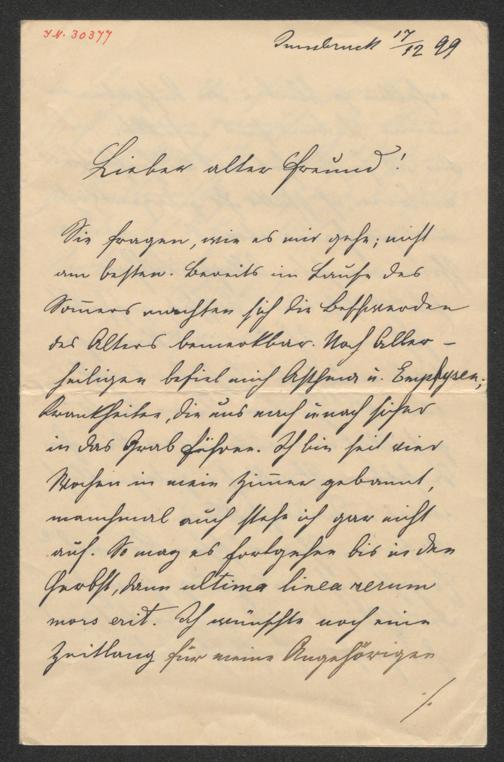 I.N. 30377
Innsbruck 17/12 99
Lieber alter Freund!
Sie fragen, wie es mir gehe; nicht
am besten. Bereits im Laufe des
Som̄ers machten sich die Beschwerden
des Alters bemerkbar. Nach Aller-
heiligen befiel mich Asthma u. Emphysem;
Krankheiten, die uns nach u nach sicher
in das Grab führen. Ich bin seit vier
Wochen in mein Zim̄er gebannt,
manchmal auch stehe ich gar nicht
auf. So mag es fortgehen bis in den
Herbst, dann ultima linea rerum
mors erit. Ich wünschte noch eine
Zeitlang für meine Angehörigen
./.